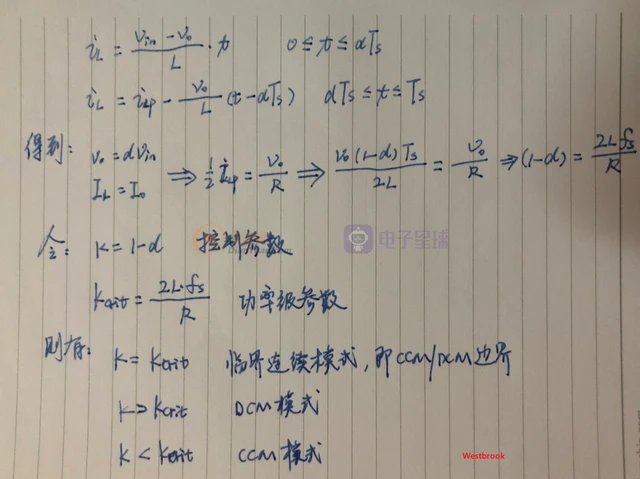 i_L = (v_in − v_o)/L · t  0 ≤ t ≤ dTs
i_L = i_Lp − v_o/L (t − dTs)  dTs ≤ t ≤ Ts
得到: v_o = dv_in
I_L = I_o ⇒ 1/2 i_Lp = v_o/R ⇒ v_o(1-d)Ts/2L = v_o/R ⇒ (1-d) = 2L·fs/R
令: K = 1-d 控制参数
电子星球
Kcrit = 2L·fs/R 功率级参数
则有: K = Kcrit 临界连续模式, 即CCM/DCM边界
K > Kcrit DCM模式
K < Kcrit CCM模式
Westbrook